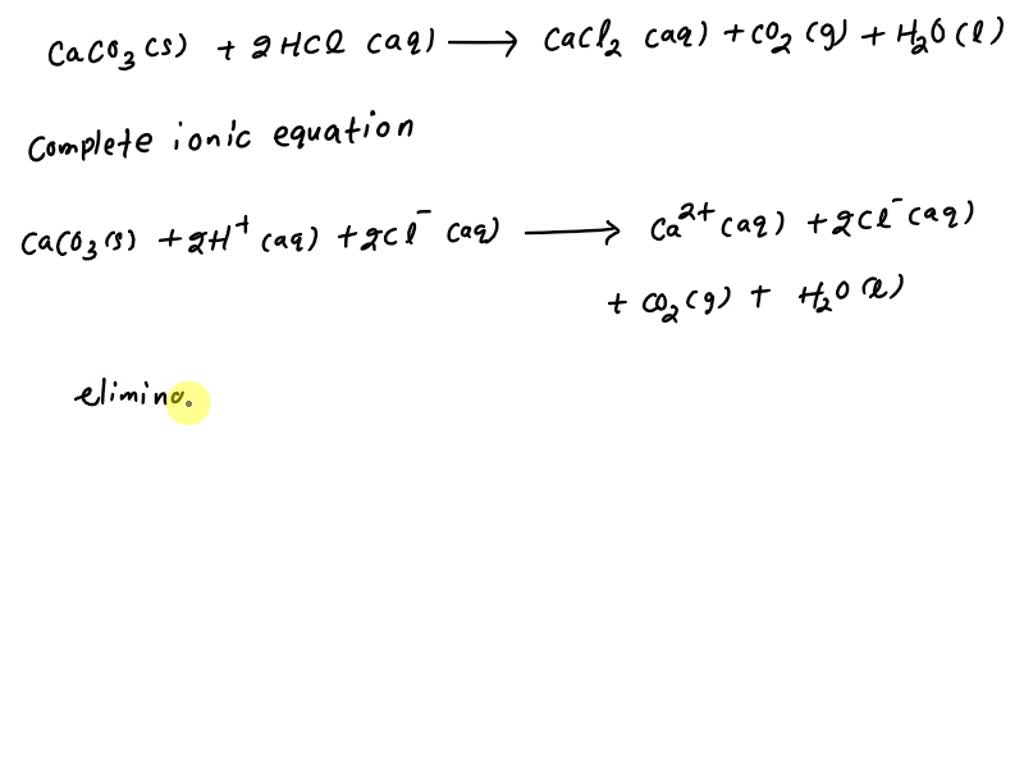 CaCO₃(s) + 2HCl (aq) ⟶ CaCl₂ (aq) + CO₂ (g) + H₂O(l)
Complete ionic equation
CaCO₃(s) + 2H⁺(aq) + 2Cl⁻ (aq) ⟶ Ca²⁺(aq) + 2Cl⁻(aq)
+ CO₂(g) + H₂O(l)
elimina